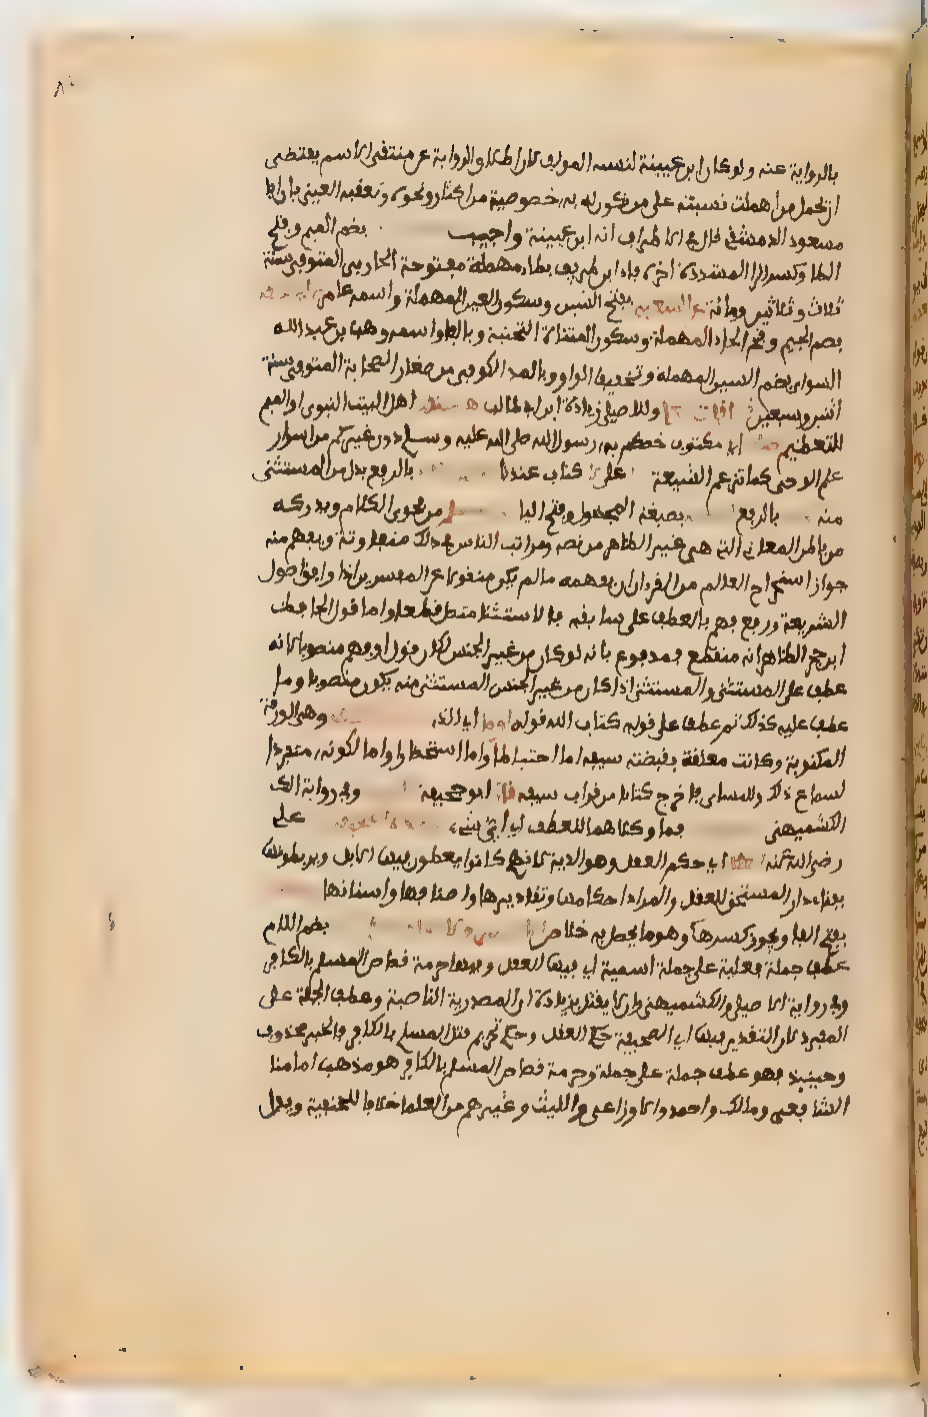 بالرواية عنه ولو كان ابن عيينة لنسبه المؤلف لان اطلاق الرواية عن متفقي الاسم يقتضي
ان يحمل من اهملت نسبته على من يكون له به خصوصية من اكثار ونحوه وتعقبه العيني بان ابا
مسعود الدمشقي قال في الاطراف انه ابن عيينة واجيب بضم الميم وفتح
الطا وكسر الرا المشددة اخره فا ابن طريف بطا مهملة مفتوحة الحارثي المتوفى سنة
ثلاث وثلاثين ومائة عن الشعبي بفتح الشين وسكون العين المهملة واسمه عامر
بضم الجيم وفتح الحا المهملة وسكون المثناة التحتية وبالفا واسمه وهب بن عبد الله
السوائي بضم السين المهملة وتخفيف الواو وبالمد الكوفي من صغار الصحابة المتوفى سنة
اثنين وسبعين وللاصيلي زيادة ابن ابي طالب اهل البيت النبوي او الميم
للتعظيم اي مكتوب خصكم به رسول الله صلى الله عليه وسلم دون غيركم من اسرار
علم الوحي كما تزعم الشيعة على لا كتاب عندنا بالرفع بدل من المستثنى
منه بالرفع بصيغة المجهول وفتح اليا من فحوى الكلام ويدركه
من باطن المعاني التي هي غير الظاهر من نصه ومراتب الناس في ذلك متفاوتة ويفهم منه
جواز استخراج العالم من القران بفهمه ما لم يكن منقولا عن المفسرين اذا وافق اصول
الشريعة ورفع فهم بالعطف على سابقه فالاستثنا متصل قطعا واما قول الحافظ
ابن حجر الظاهر انه منقطع فمدفوع بانه لو كان من غير الجنس لكان قوله او فهم منصوبا لانه
عطف على المستثنى والمستثنى اذا كان من غير الجنس المستثنى منه يكون منصوبا وما
عطف عليه كذلك ثم عطف على قوله كتاب الله قوله او ما اي الذي وهي الورقة
المكتوبة وكانت معلقة بقبضة سيفه اما احتياطا واما استحضارا واما لكونه منفردا
لسماع ذلك وللنسائي فاخرج كتابا من قراب سيفه قال ابو جحيفة وفي رواية
الكشميهني فما وكلاهما للعطف اي اي شيء علي
رضي الله عنه اي حكم العقل وهو الدية لانهم كانوا يعطون فيها الابل ويربطونها
بفناء دار المستحق للعقل والمراد احكامها ومقاديرها واصنافها واسنانها
بفتح الفا ويجوز كسرها وهو ما يحصل به خلاص بضم اللام
عطف جملة فعلية على جملة اسمية اي فيها العقل وفيها حرمة قصاص المسلم بالكافر
وفي رواية الاصيلي والكشميهني وان لا يقتل بزيادة ان المصدرية الناصبة وعطف الجملة على
المفرد لان التقدير فيها اي الصحيفة حكم العقل وحكم تحريم قتل المسلم بالكافر فالخبر محذوف
وحينئذ فهو عطف جملة على جملة وحرمة قصاص المسلم بالكافر هو مذهب امامنا
الشافعي ومالك واحمد والاوزاعي والليث وغيرهم من العلما خلافا للحنفية ويدل